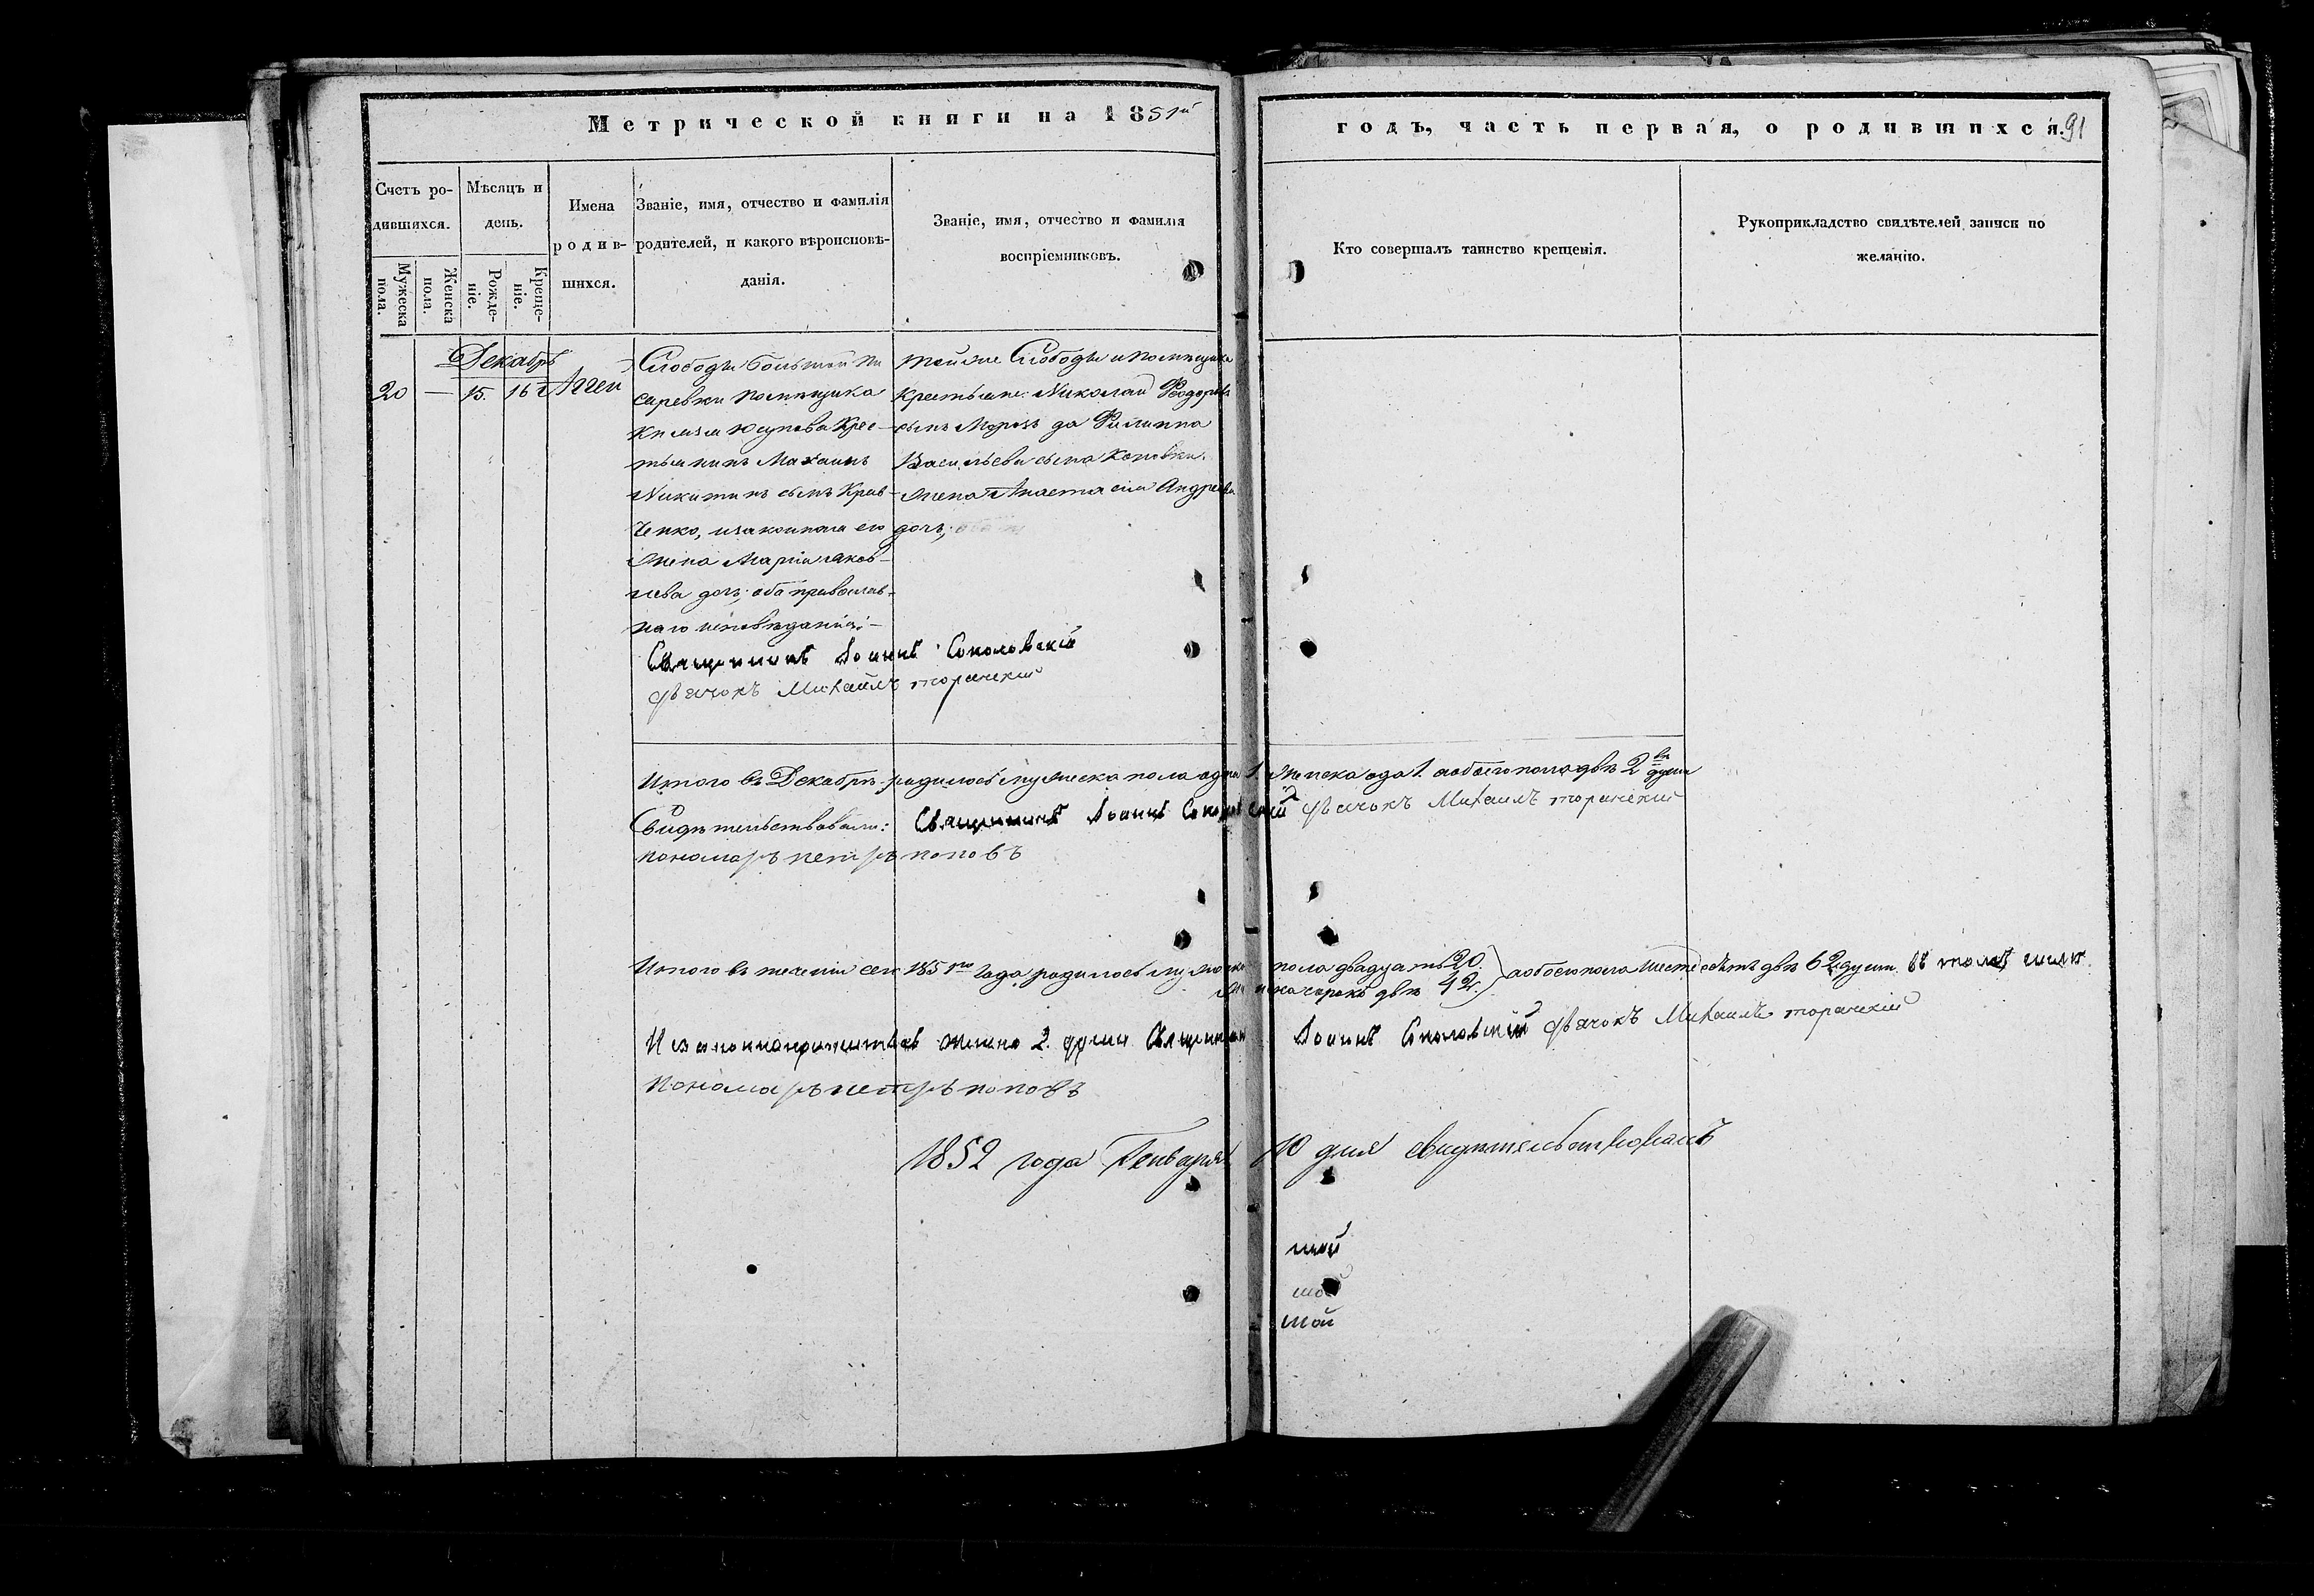 Метрической книги на 1851й
годъ, часть первая, о родившихся. 91
Счетъ ро-
дившихся.
Мужеска
пола.
Женска
пола.
Мѣсяцъ и
день.
Рожде-
ніе.
Креще-
ніе.
Имена
родив-
шихся.
Званіе, имя, отчество и фамилія
родителей, и какого вѣроисповѣ-
данія.
Званіе, имя, отчество и фамилія
воспріемниковъ.
Кто совершалъ таинство крещенія.
Рукоприкладство свидѣтелей записи по
желанію.
Декабрь
20 — 15. 16 Аггей
Слободы Большой Пи
саревки помѣщика
Князя Юсупова Крес-
тьянинъ
Никитинъ сынъ Крав-
ченко, и законная его
жена Марія Яков-
лева дочь; оба православ-
наго исповѣданія:—
той же Слободы и помѣщика
Крестьяне: Николай Феодоровъ
сынъ Морозъ да Филиппа
Васильева сына
жена Анастасія Андреева
дочь;
Священникъ Іоаннъ Соколовскій
Дьячокъ Михаилъ
Итого въ Декабрѣ родилось мужеска пола одна 1. женска одна 1. а обоего пола двѣ 2 души
Свидѣтельствовали: Священникъ Іоаннъ Соколовскій Дьячокъ Михаилъ
пономарь петръ поповъ
Итого въ теченіи сего 1851го Года родилось мужеска пола двадцать 20.
женска сорокъ двѣ 42. а обоего пола шестьдесятъ двѣ 62 души. въ томъ числѣ
2. души Священникъ Іоаннъ Соколовскій Дьячокъ Михаилъ
пономарь петръ поповъ
1852 года Генваря 10 дня свидѣтельствовалъ
шой
шой